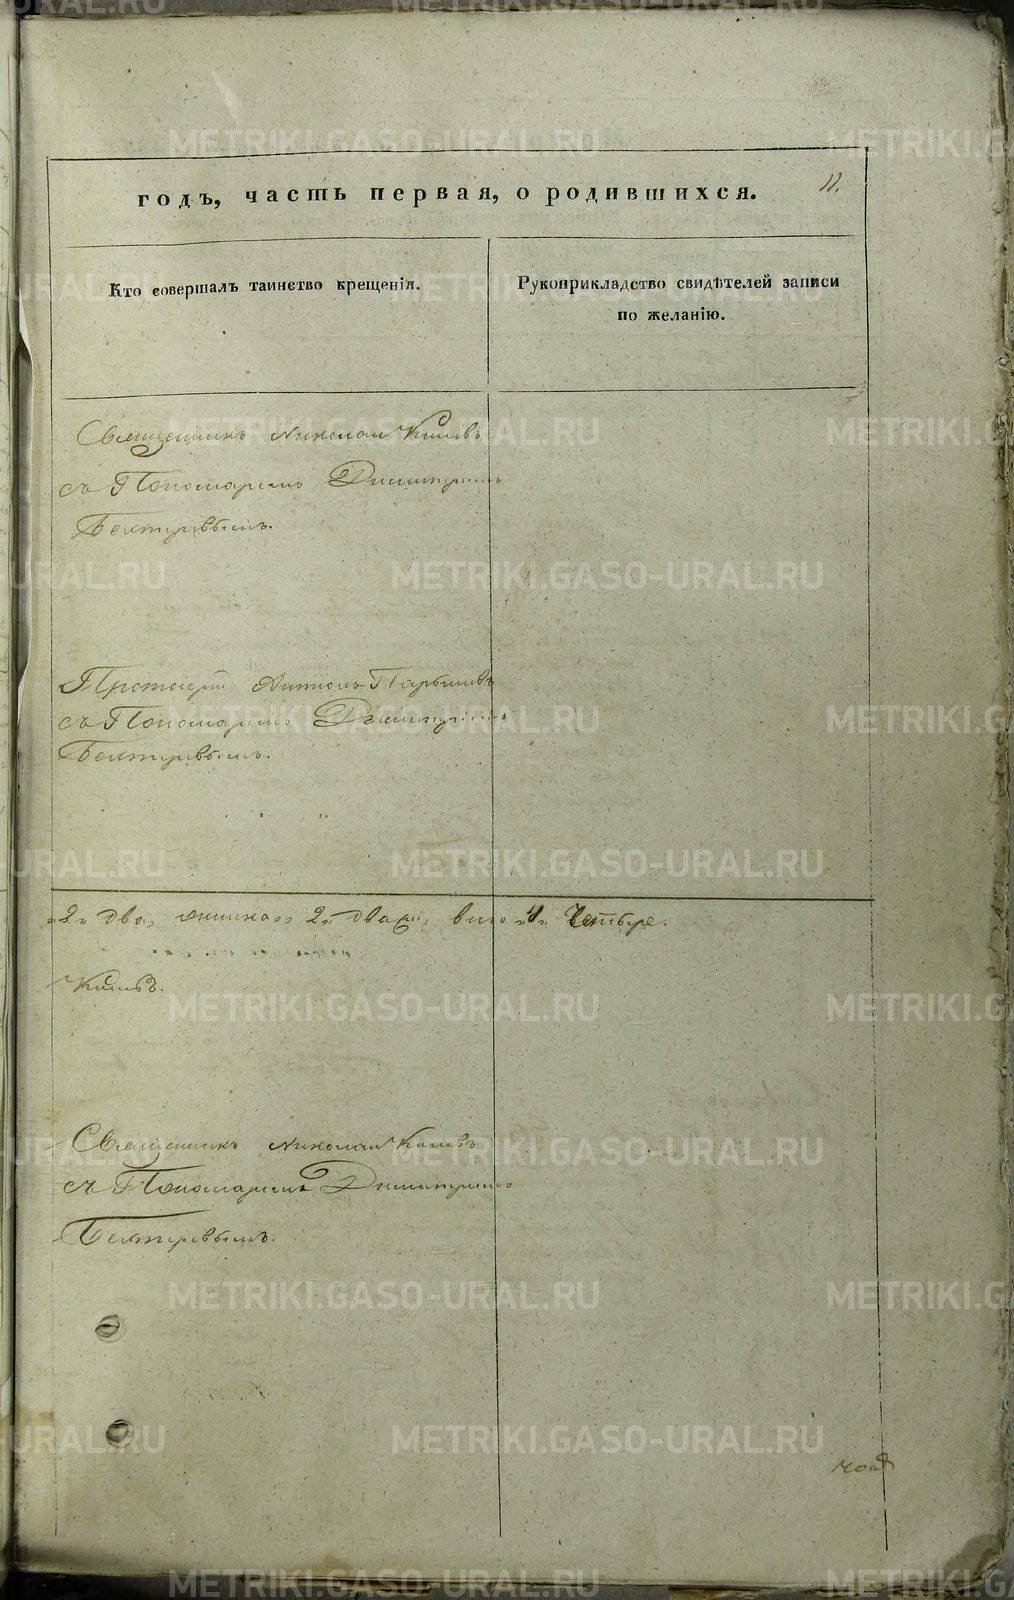 11.
годъ, часть первая, о родившихся.
Кто совершалъ таинство крещенія.
Рукоприкладство свидѣтелей записи
по желанію.
Священникъ Николай
съ Пономаремъ Димитріемъ
Бехтеревымъ.
Протоіерей Антонъ
съ Пономаремъ Димитріемъ
Бехтеревымъ.
„2„ два, женска „2„ два, всего „4„ Четыре.
Священникъ Николай
съ Пономаремъ Димитріемъ
Бехтеревымъ.
METRIKI.GASO-URAL.RU